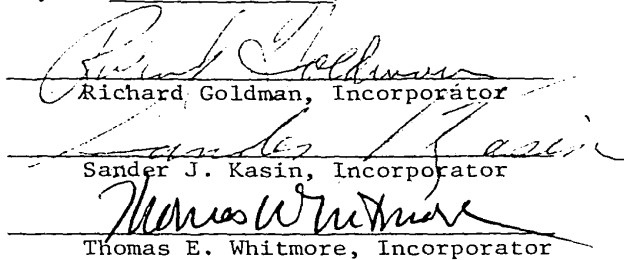 Richard Goldman
Richard Goldman, Incorporator
Sander Kasin
Sander J. Kasin, Incorporator
Thomas Whitmore
Thomas E. Whitmore, Incorporator